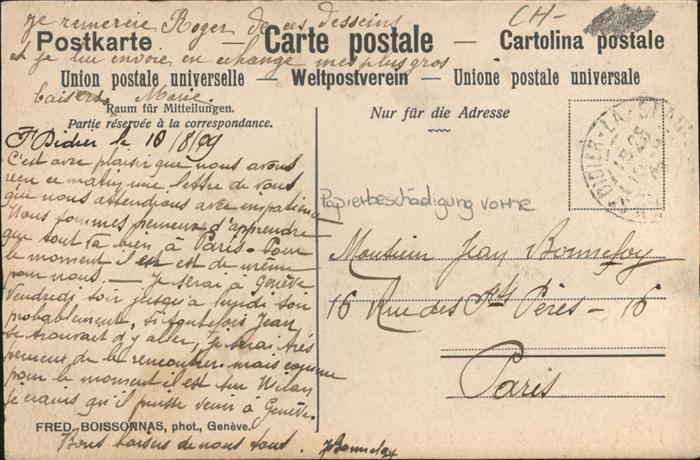 Je remercie Roger de ces dessins
CH-
Postkarte — Carte postale — Cartolina postale
et je lui envoie en échange mes plus gros
Union postale universelle — Weltpostverein — Unione postale universale
baisers. Marie.
Raum für Mitteilungen.
Partie réservée à la correspondance.
Nur für die Adresse
St Didier le 10/8/09
C'est avec plaisir que nous avons
reçu ce matin une lettre de vous
que nous attendions avec impatience
Nous sommes heureux d'apprendre
que tout va bien à Paris. Pour
le moment il en est de même
pour nous. — Je serai à Genève
Vendredi soir jusqu'à lundi soir
probablement. Si toutefois Jean
se trouvait d'y aller, je serai très
heureux de le rencontrer. mais comme
pour le moment il est sur Milan
je crains qu'il puisse venir à Genève.
FRED. BOISSONNAS, phot., Genève.
Bons baisers de nous tous. JBonnefoy
ST DIDIER-LA-
Papierbeschädigung vorne
Monsieur Jean Bonnefoy
16 Rue des Sts Pères - 16
Paris